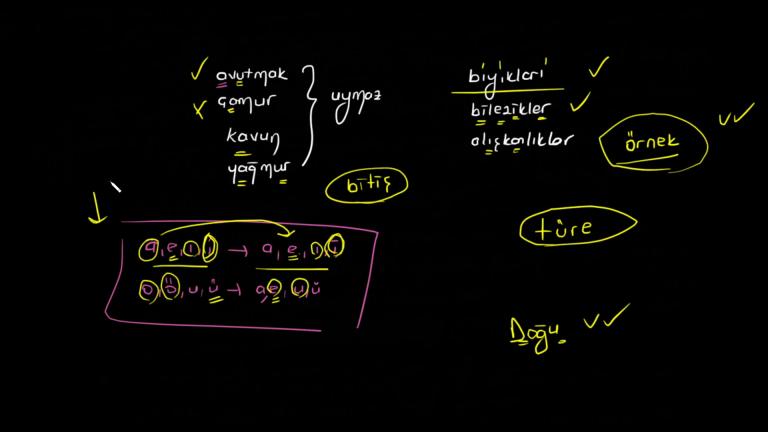 avutmak
çamur
kavun
yağmur
uymaz
bıyıkları
bilezikler
alışkanlıklar
örnek
bitiş
türe
a, e, ı, i → a, e, ı, i
o, ö, u, ü → a, e, u, ü
Doğu